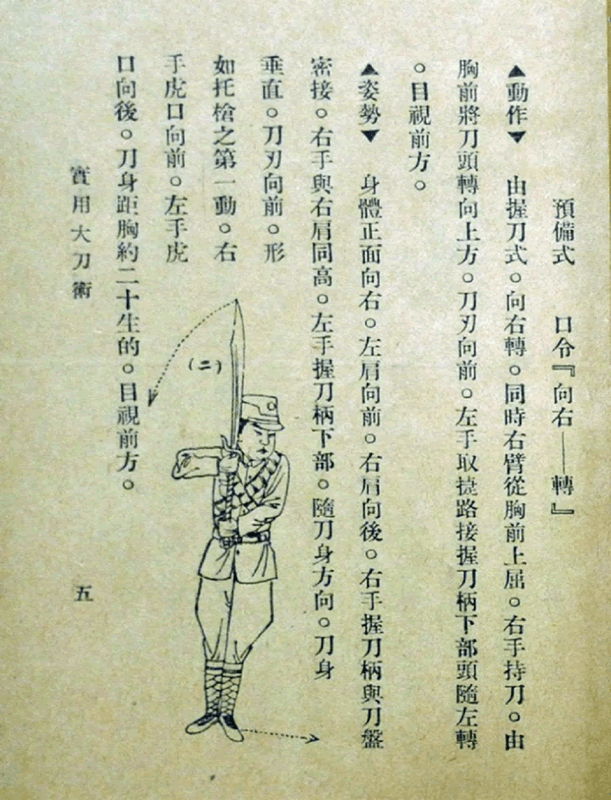 預備式　口令『向右——轉』
▲動作▼　由握刀式。向右轉。同時右臂從胸前上屈。右手持刀。由
胸前將刀頭轉向上方。刀刃向前。左手取捷路接握刀柄下部頭隨左轉
。目視前方。
▲姿勢▼　身體正面向右。左肩向前。右肩向後。右手握刀柄與刀盤
密接。右手與右肩同高。左手握刀柄下部。隨刀身方向。刀身
垂直。刀刃向前。形
如托槍之第一動。右
手虎口向前。左手虎
口向後。刀身距胸約二十生的。目視前方。
(二)
實用大刀術
五